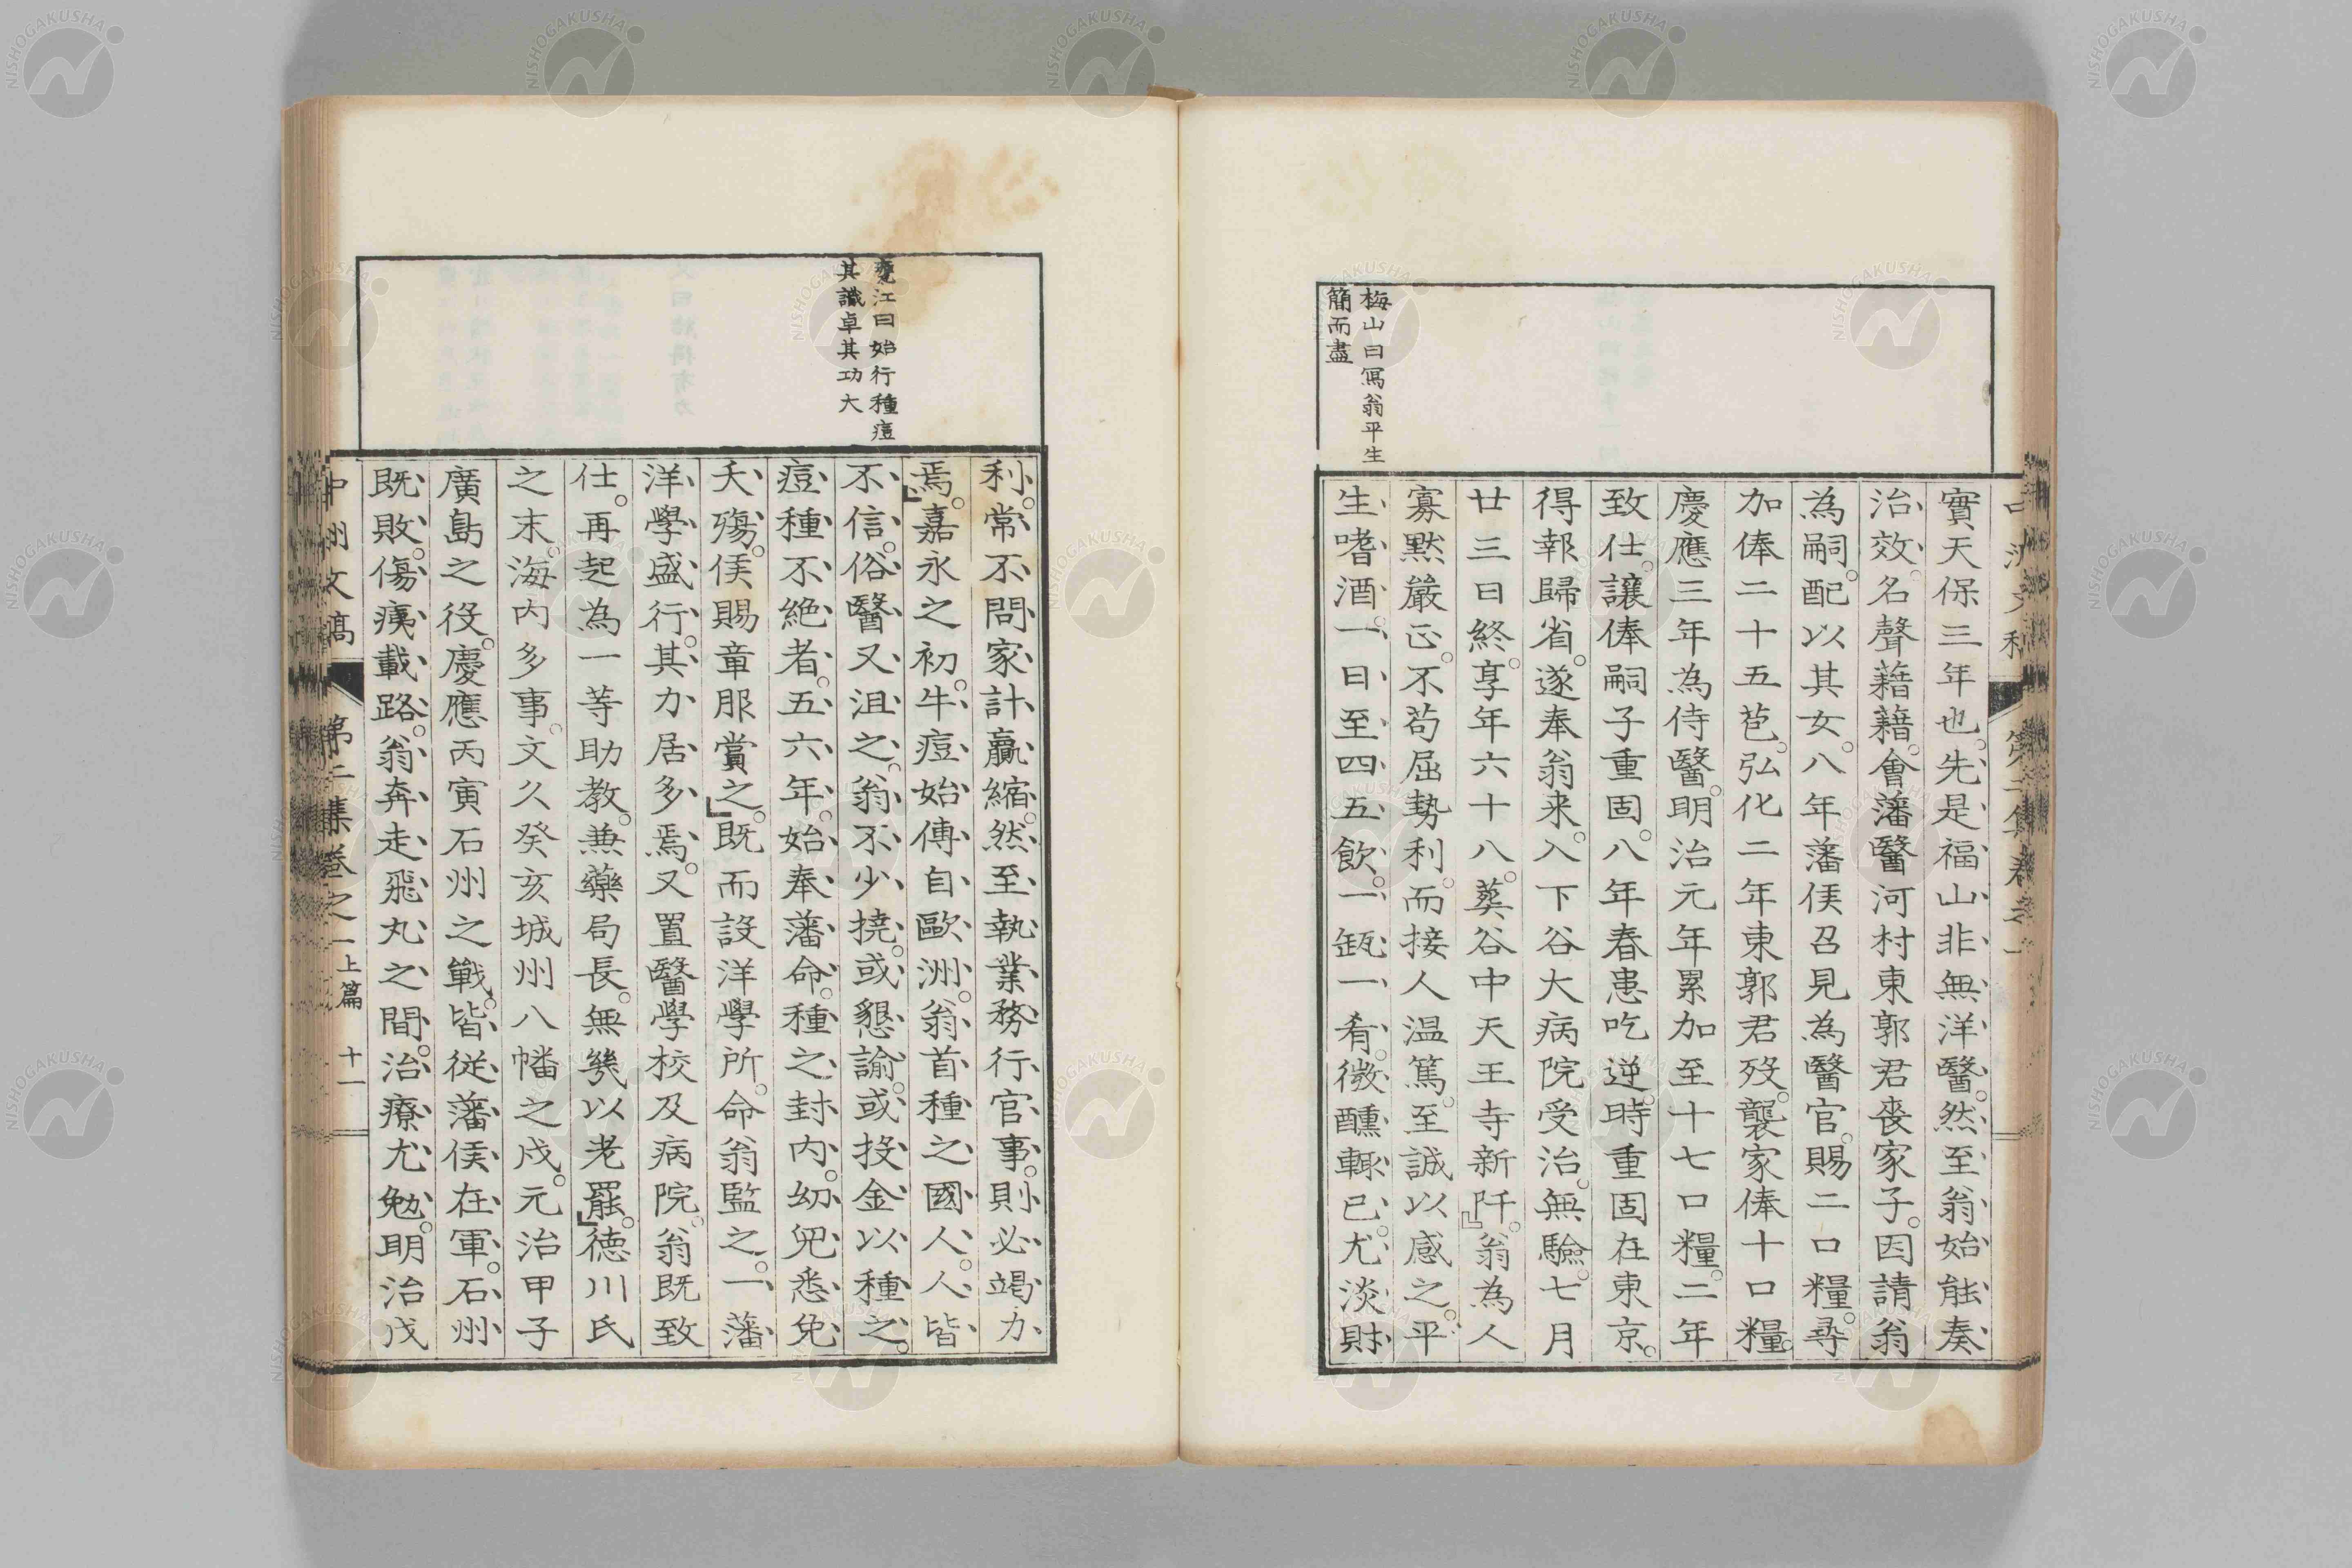 梅山曰寫翁平生
簡而盡
實天保三年也。先是福山非無洋醫。然至翁始能奏
治效。名聲藉藉。會藩醫河村東郭君喪家子。因請翁
為嗣。配以其女。八年藩侯召見為醫官。賜二口糧。尋
加俸二十五苞。弘化二年東郭君歿。襲家俸十口糧。
慶應三年為侍醫。明治元年累加至十七口糧。二年
致仕。讓俸嗣子重固。八年春患吃逆。時重固在東京。
得報歸省。遂奉翁来。入下谷大病院受治。無驗。七月
廿三日終。享年六十八。葬谷中天王寺新阡。』翁為人
寡默嚴正。不苟屈勢利。而接人温篤。至誠以感之。平
生嗜酒。一日至四五飲。一瓻一肴。微醺輙已。尤淡財
甕江曰始行種痘
其識卓其功大
利。常不問家計贏縮。然至執業務行官事。則必竭力
焉。』嘉永之初。牛痘始傳自歐洲。翁首種之國人。人皆
不信。俗醫又沮之。翁不少撓。或懇諭。或投金以種之。
痘種不絶者。五六年。始奉藩命。種之封内。幼兒悉免
夭殤。侯賜章服賞之。』既而設洋學所。命翁監之。一藩
洋學盛行。其力居多焉。又置醫學校及病院。翁既致
仕。再起為一等助教。兼藥局長。無幾以老罷。』徳川氏
之末海内多事。文久癸亥城州八幡之戍。元治甲子
廣島之役。慶應丙寅石州之戰。皆從藩侯在軍。石州
既敗。傷痍載路。翁奔走飛丸之間。治療尤勉。明治戊
中洲文稿 第二集卷之一上篇 十一